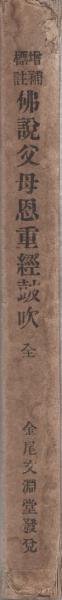 增補
標註
佛說父母恩重經鼓吹 全
金尾文淵堂發兌